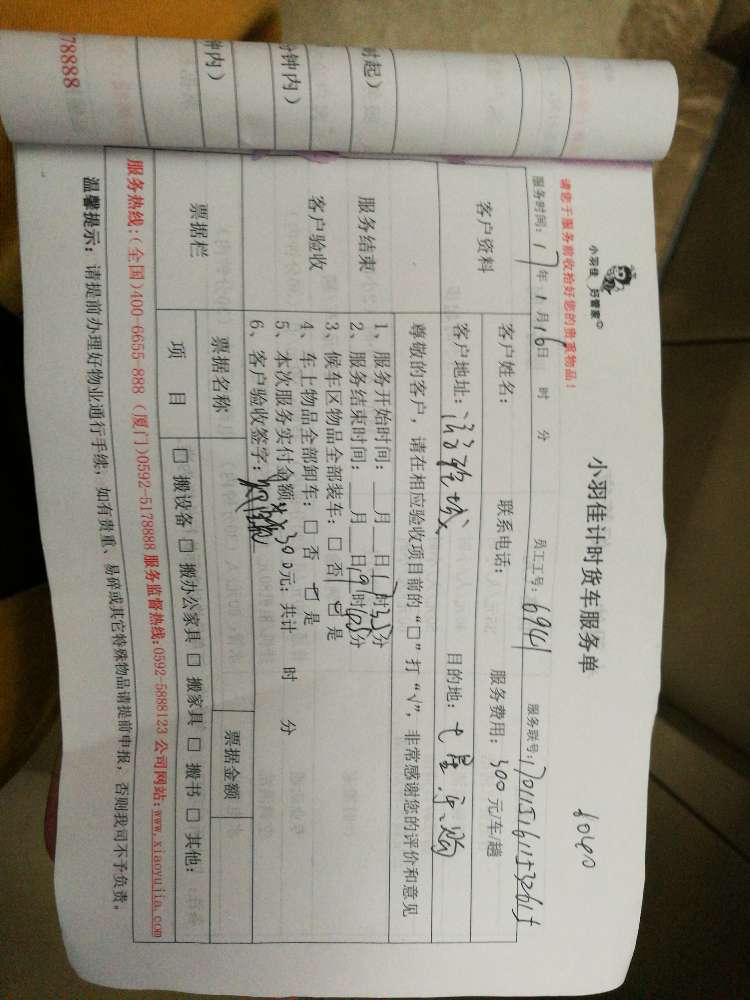 小羽佳 好管家
小羽佳计时货车服务单
6040
请您于服务前收拾好您的贵重物品！
服务时间：17年1月16日 时 分 员工工号：6941 服务联号：
客户资料
客户姓名： 联系电话： 服务费用：300元/车/趟
客户地址： 目的地：
尊敬的客户，请在相应验收项目前的“□”打“√”，非常感谢您的评价和意见
服务结束
客户验收
1、服务开始时间：__月__日17时35分
2、服务结束时间：__月__日19时05分
3、候车区物品全部装车：□ 否 □ 是
4、车上物品全部卸车：□ 否 □ 是
5、本次服务实付金额300元；共计 时 分
6、客户验收签字：
票据栏
票据名称 票据金额
项 目 □ 搬设备 □ 搬办公家具 □ 搬家具 □ 搬书 □ 其他：
服务热线：（全国）400-6655-888 （厦门）0592-5178888 服务监督热线：0592-5888123 公司网站：www.xiaoyujia.com
温馨提示：请提前办理好物业通行手续，如有贵重、易碎或其它特殊物品请提前申报，否则我司不予负责。
时起）
钟内）
钟内）
78888